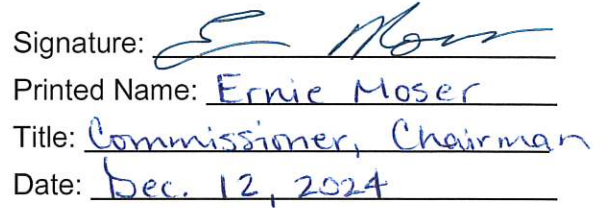 Signature: E Moser
Printed Name: Ernie Moser
Title: Commissioner, Chairman
Date: Dec. 12, 2024